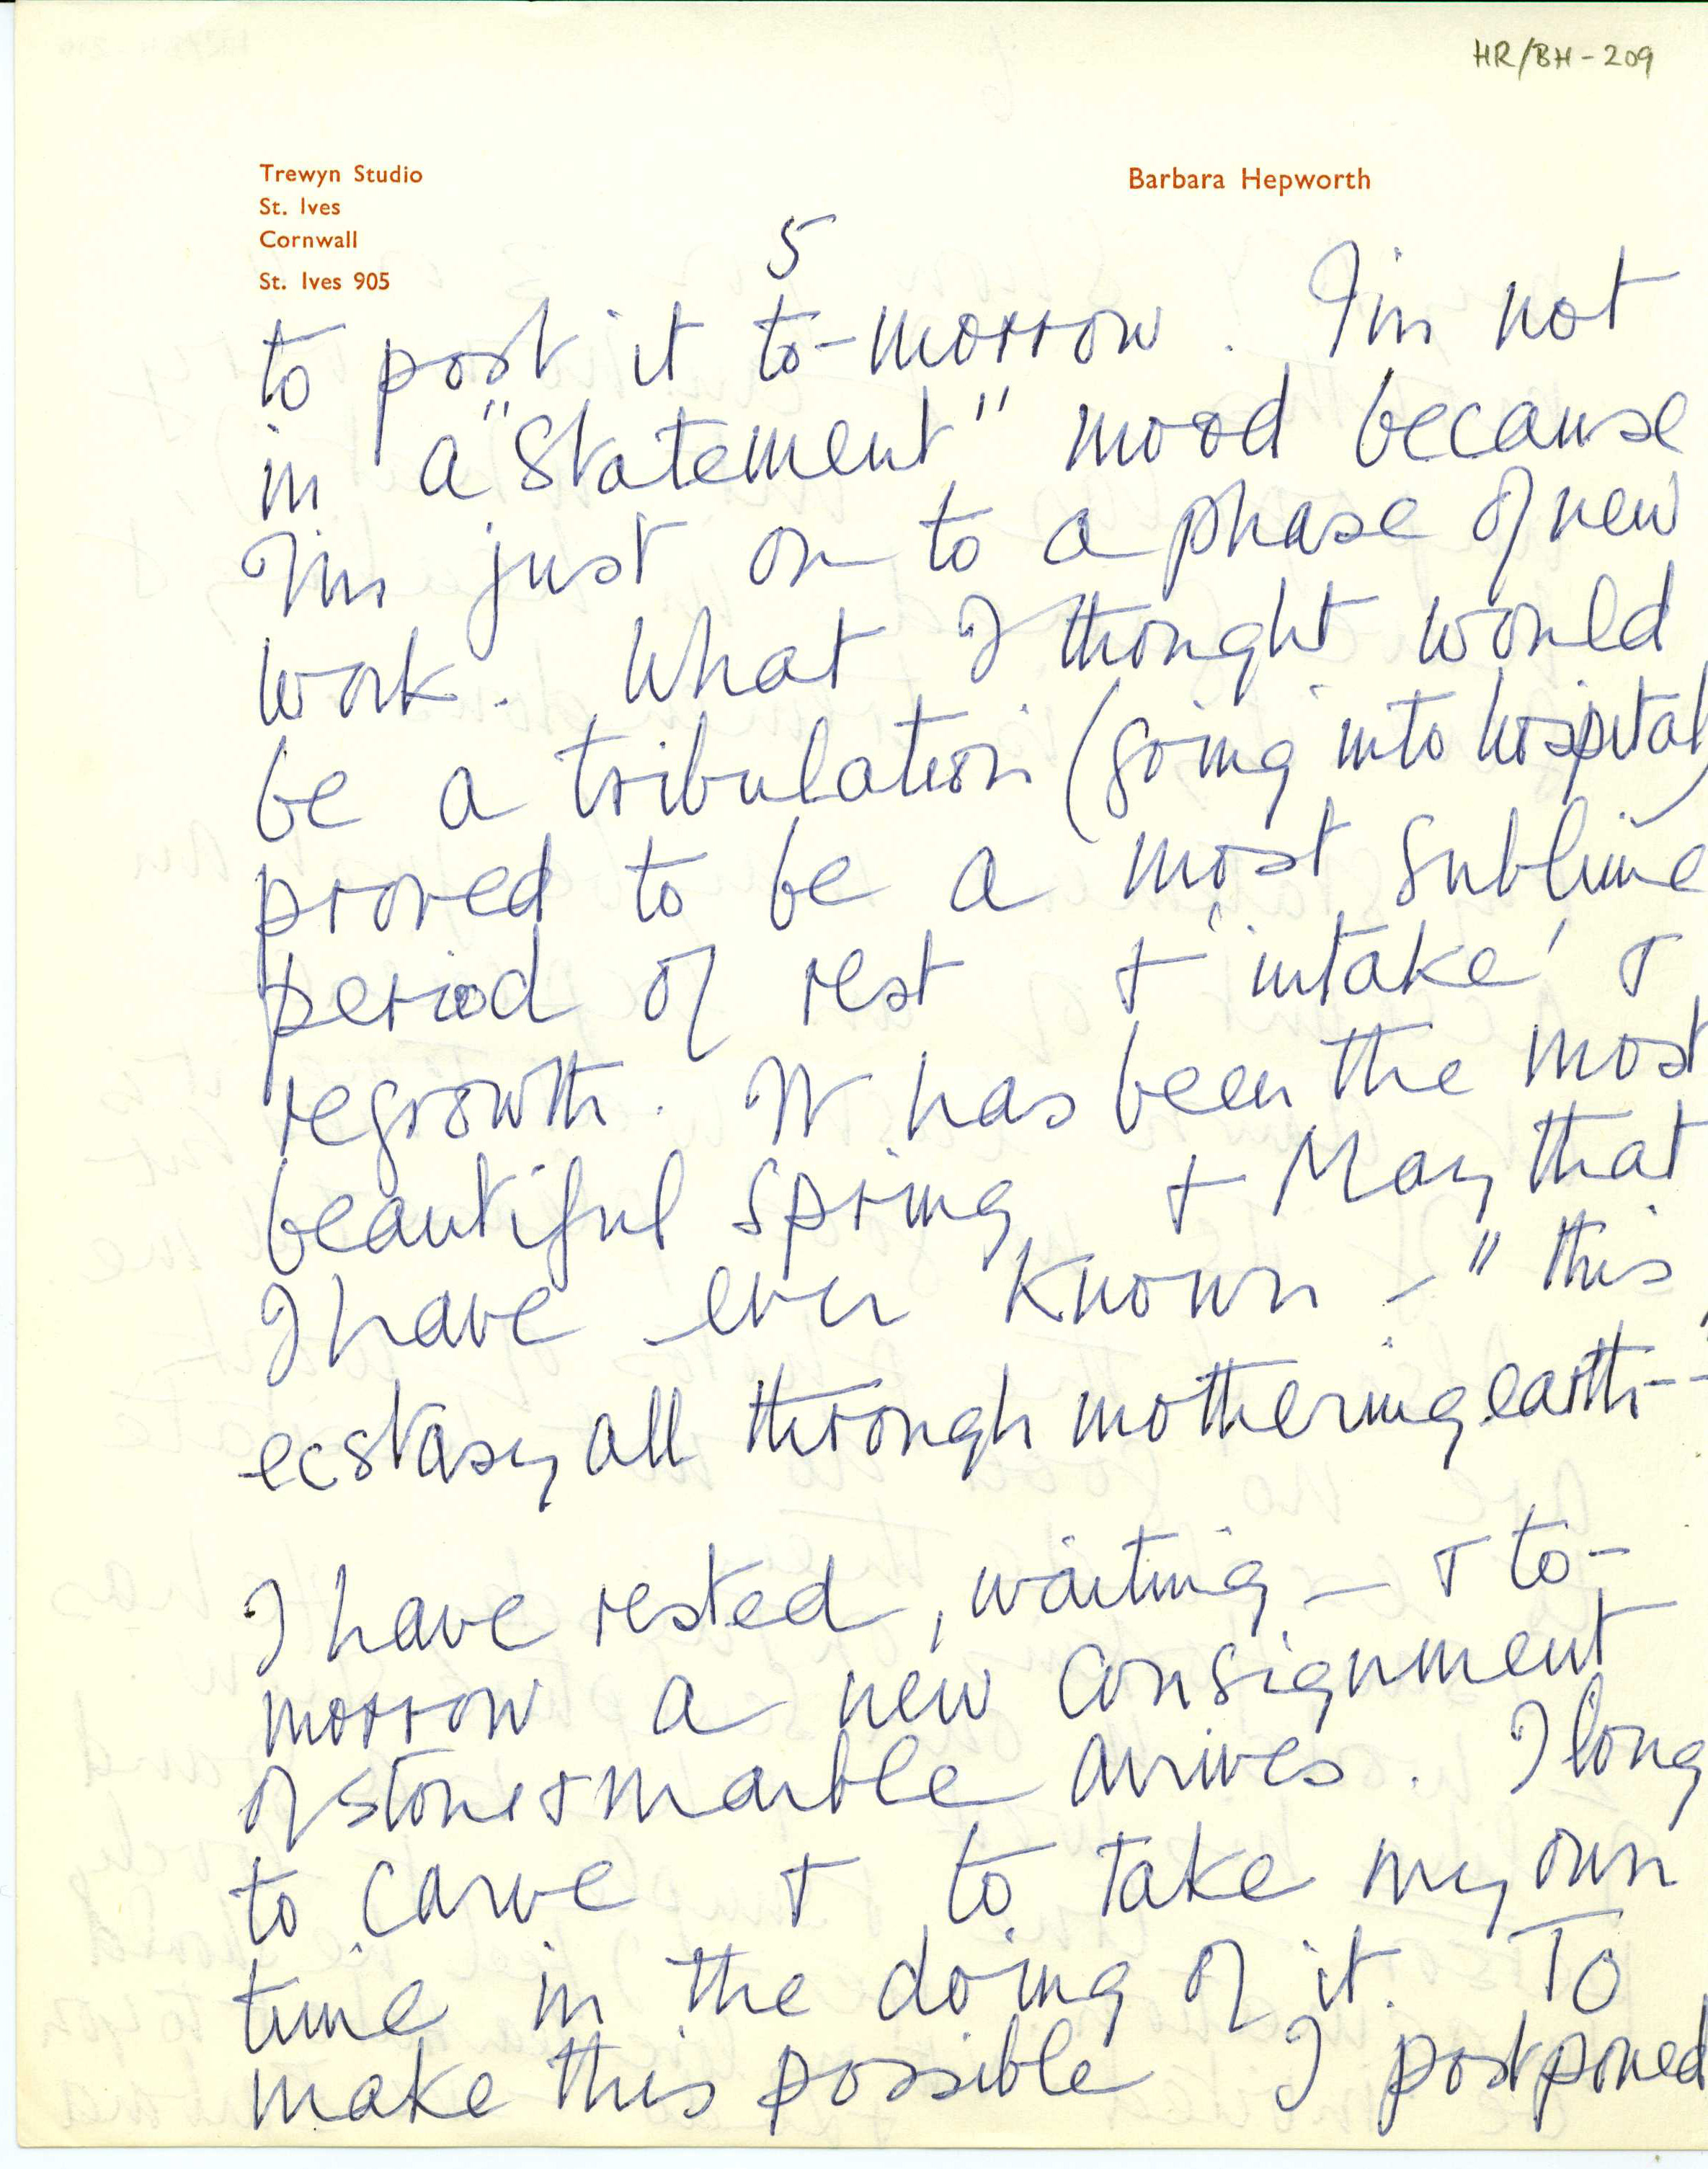 HR/BH-209
Trewyn Studio
St. Ives
Cornwall
St. Ives 905
Barbara Hepworth
5
to post it to-morrow. I'm not
in a "Statement" mood because
I'm just on to a phase of new
work. What I thought would
be a tribulation (going into hospital)
proved to be a most sublime
period of rest & 'intake' &
regrowth. It has been the most
beautiful Spring & May that
I have ever known – "this
ecstasy all through mothering earth--"
I have rested, waiting – & to-
morrow a new consignment
of stone & marble arrives. I long
to carve & to take my own
time in the doing of it. To
make this possible I postponed